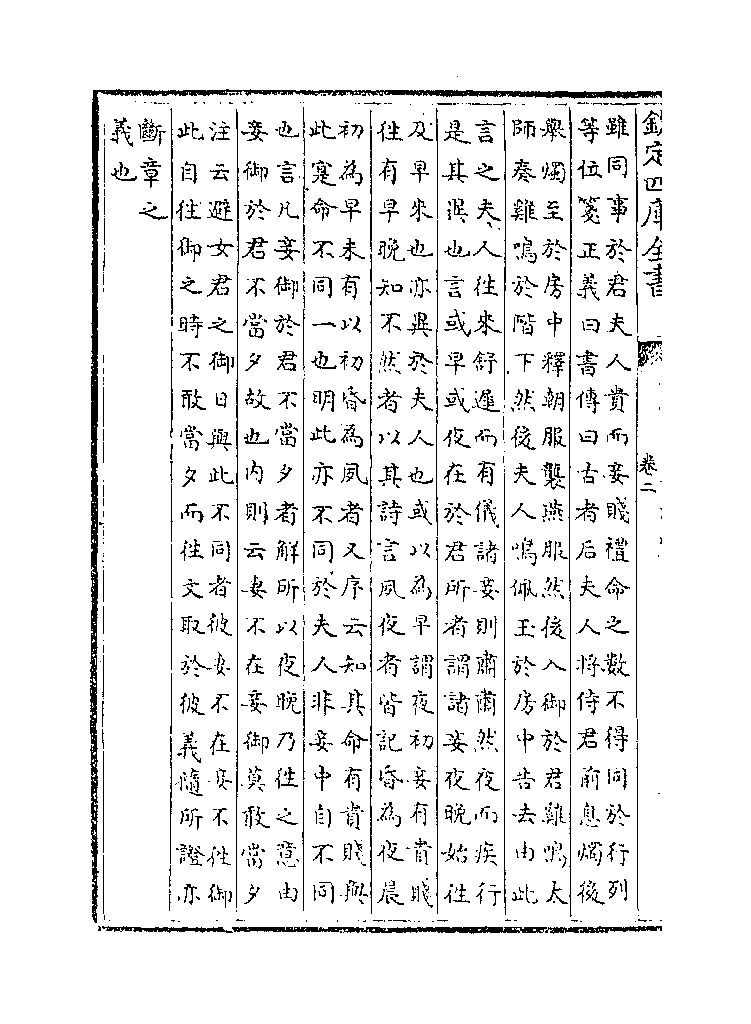 欽定四庫全書
卷二
雖同事於君夫人貴而妾賤禮命之數不得同於行列
等位箋正義曰書傳曰古者后夫人將侍君前息燭後
舉燭至於房中釋朝服襲燕服然後入御於君雞鳴太
師奏雞鳴於階下然後夫人鳴佩玉於房中告去由此
言之夫人往來舒遲而有儀諸妾則肅肅然夜而疾行
是其異也言或早或夜在於君所者謂諸妾夜晚始往
及早來也亦異於夫人也或以為早謂夜初妾有貴賤
往有早晚知不然者以其詩言夙夜者皆記昏為夜晨
初為早未有以初昏為夙者又序云知其命有貴賤與
此寔命不同一也明此亦不同於夫人非妾中自不同
也言凡妾御於君不當夕者解所以夜晚乃往之意由
妾御於君不當夕故也内則云妻不在妾御莫敢當夕
注云避女君之御日與此不同者彼妻不在妾不往御
此自往御之時不敢當夕而往文取於彼義隨所證亦
斷章之
義也